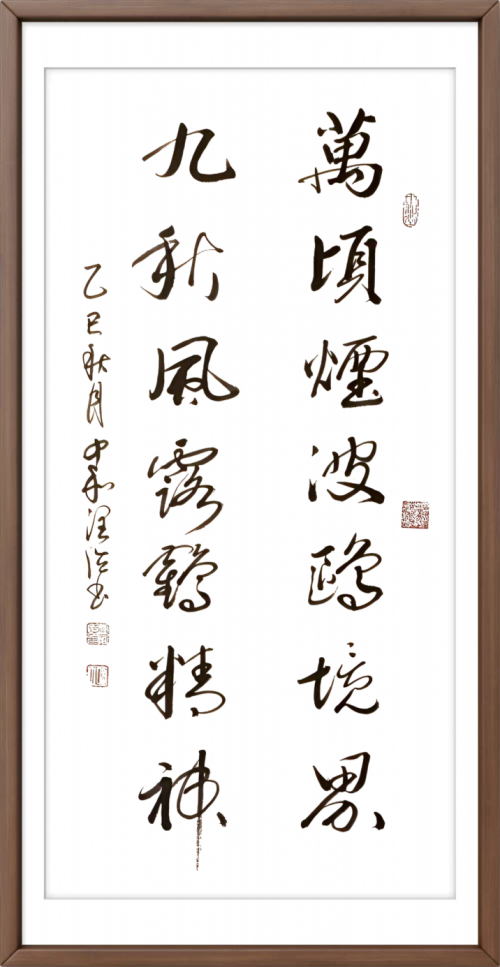 萬頃煙波鷗境界
九秋風露鶴精神
乙巳秋月中和汪浩書